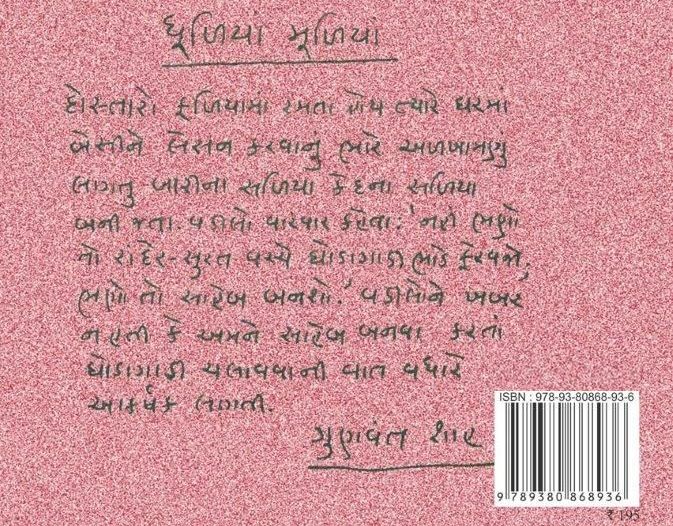 ધૂળિયાં મૂળિયાં
દોસ્તારો ફળિયામાં રમતા હોય ત્યારે ઘરમાં
બેસીને લેસન કરવાનું ભારે અળખામણું
લાગતુ બારીના સળિયા કેદના સળિયા
બની જતા. વડીલો વારંવાર કહેતા: ‘નહીં ભણો
તો રાંદેર-સુરત વચ્ચે ઘોડાગાડી ભાડે ફેરવજો,
ભણો તો સાહેબ બનશો.’ વડીલોને ખબર
નહતી કે અમને સાહેબ બનવા કરતાં
ઘોડાગાડી ચલાવવાની વાત વધારે
આકર્ષક લાગતી.
ગુણવંત શાહ
ISBN : 978-93-80868-93-6
9 789380 868936
₹ 195